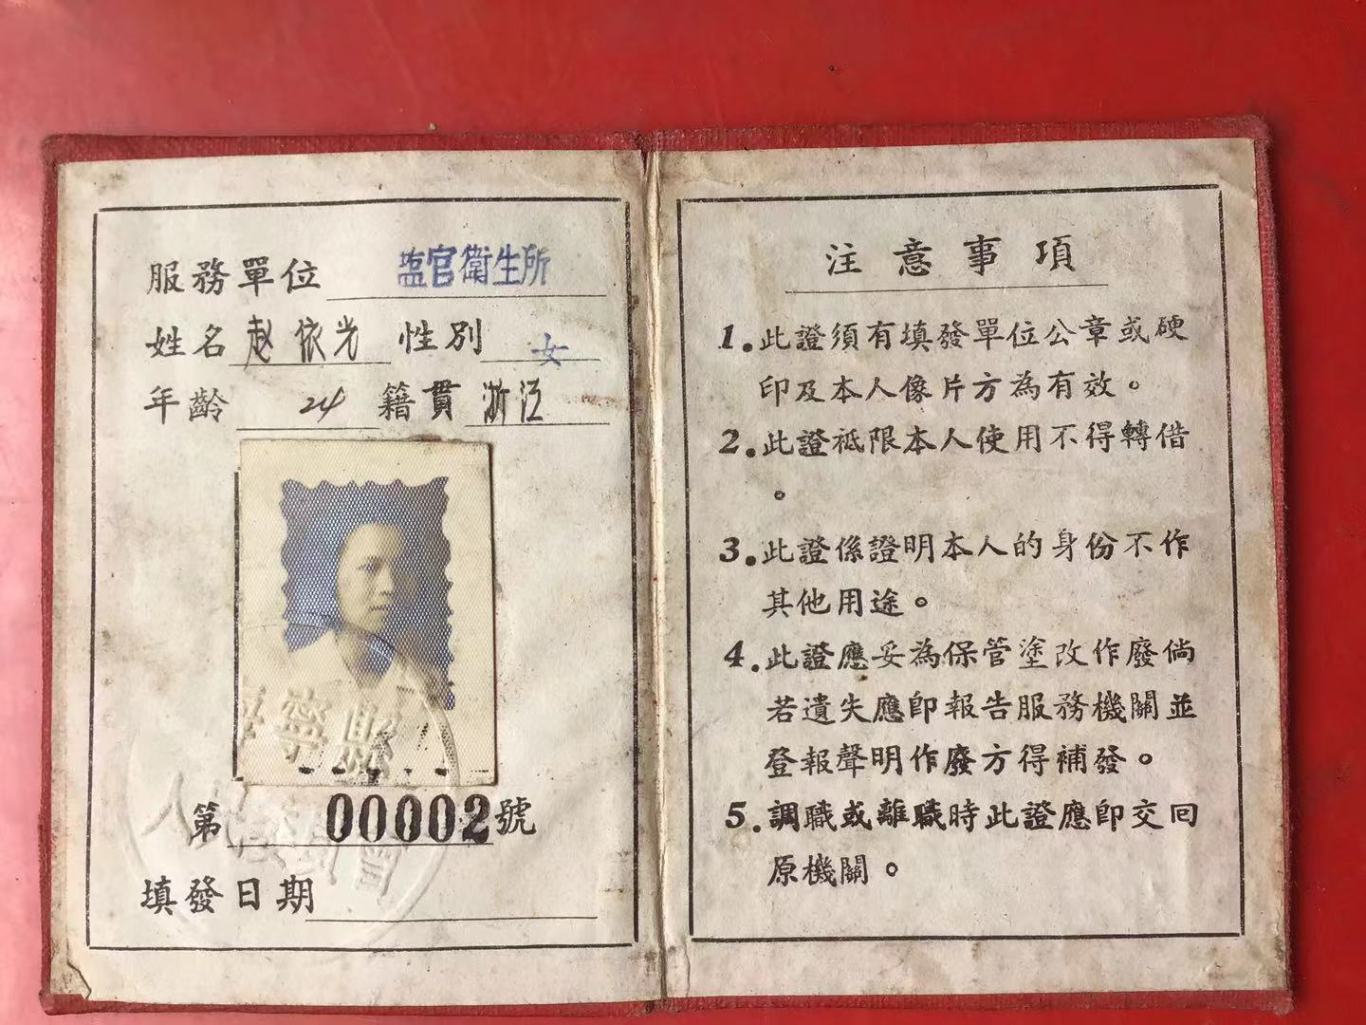 服務單位 塩官衛生所
姓名 赵依光 性別 女
年齡 24 籍貫 浙江
寧縣
人
第 00002 號
填發日期
注意事項
1.此證須有填發單位公章或硬
印及本人像片方為有效。
2.此證祗限本人使用不得轉借
。
3.此證係證明本人的身份不作
其他用途。
4.此證應妥為保管塗改作廢倘
若遺失應即報告服務機關並
登報聲明作廢方得補發。
5.調職或離職時此證應即交回
原機關。